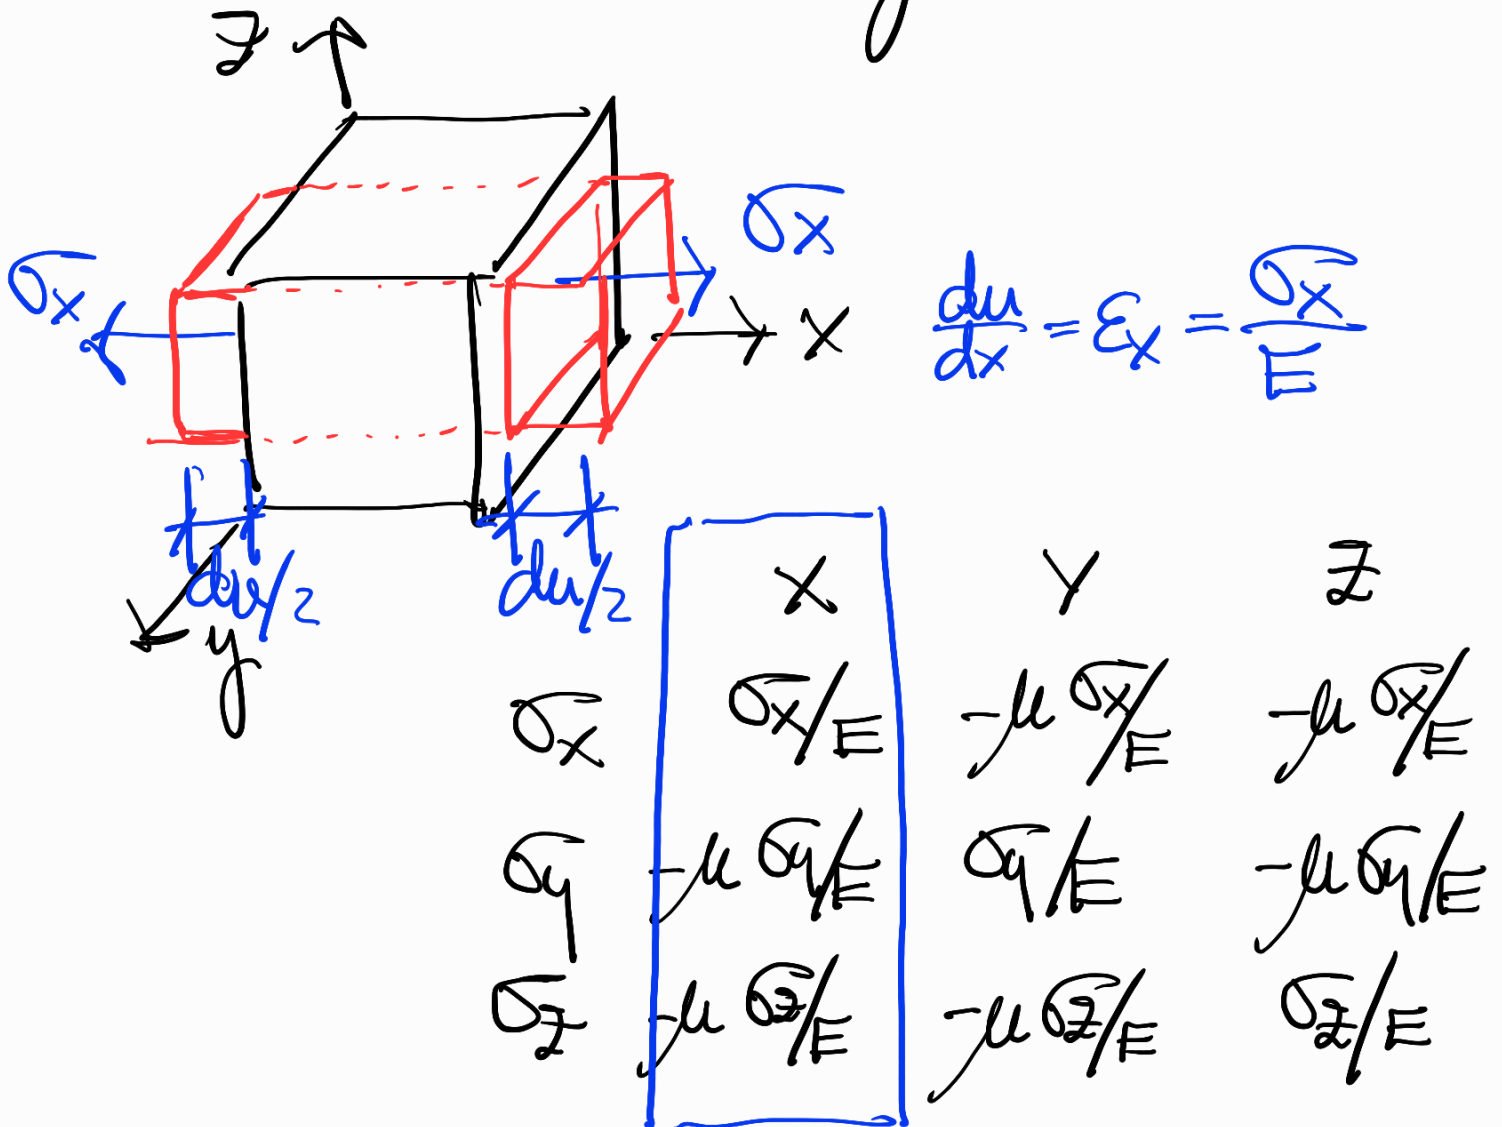 Z
σx
σx
x
du/dx = εx = σx/E
du/2
du/2
y
X Y Z
σx σx/E -μ σx/E -μ σx/E
σy -μ σy/E σy/E -μ σy/E
σz -μ σz/E -μ σz/E σz/E